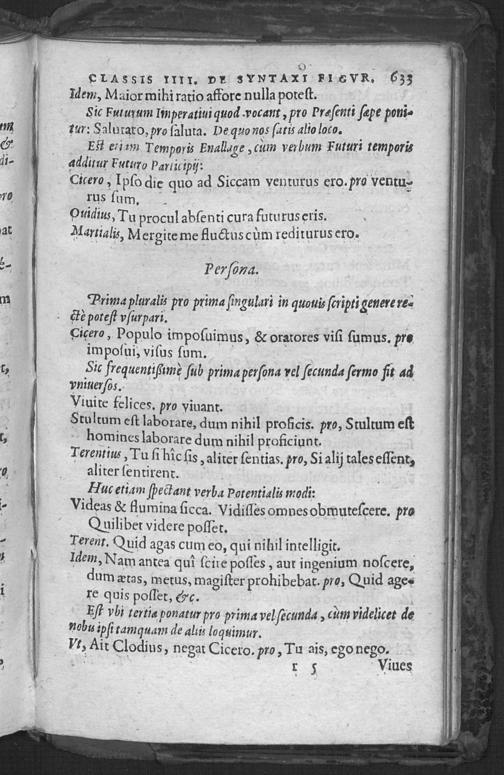 CLASSIS IIII. DE SYNTAXI FIGVR. 633
Idem, Maior mihi ratio affore nulla potest.
Sic Futurum Imperatiui quod vocant, pro Præsenti sæpe poni-
tur: Salutato, pro saluta. De quo nos satis alio loco.
Est etiam Temporis Enallage, cùm verbum Futuri temporis
additur Futuro Participij:
Cicero, Ipso die quo ad Siccam venturus ero. pro ventu-
rus sum.
Ouidius, Tu procul absenti cura futurus eris.
Martialis, Mergite me fluctus cùm rediturus ero.
Persona.
Prima pluralis pro prima singulari in quouis scripti genere re-
ctè potest vsurpari.
Cicero, Populo imposuimus, & oratores visi sumus. pro
imposui, visus sum.
Sic frequentissimè sub prima persona vel secunda sermo fit ad
vniuersos.
Viuite felices. pro viuant.
Stultum est laborare, dum nihil proficis. pro, Stultum est
homines laborare dum nihil proficiunt.
Terentius, Tu si hîc sis, aliter sentias. pro, Si alij tales essent,
aliter sentirent.
Huc etiam spectant verba Potentialis modi:
Videas & flumina sicca. Vidisses omnes obmutescere. pro
Quilibet videre posset.
Terent. Quid agas cum eo, qui nihil intelligit.
Idem, Nam antea quî scire posses, aut ingenium noscere,
dum ætas, metus, magister prohibebat. pro, Quid age-
re quis posset, &c.
Est vbi tertia ponatur pro prima vel secunda, cùm videlicet de
nobis ipsi tamquam de aliis loquimur.
Vt, Ait Clodius, negat Cicero. pro, Tu ais, ego nego.
r 5 Viues